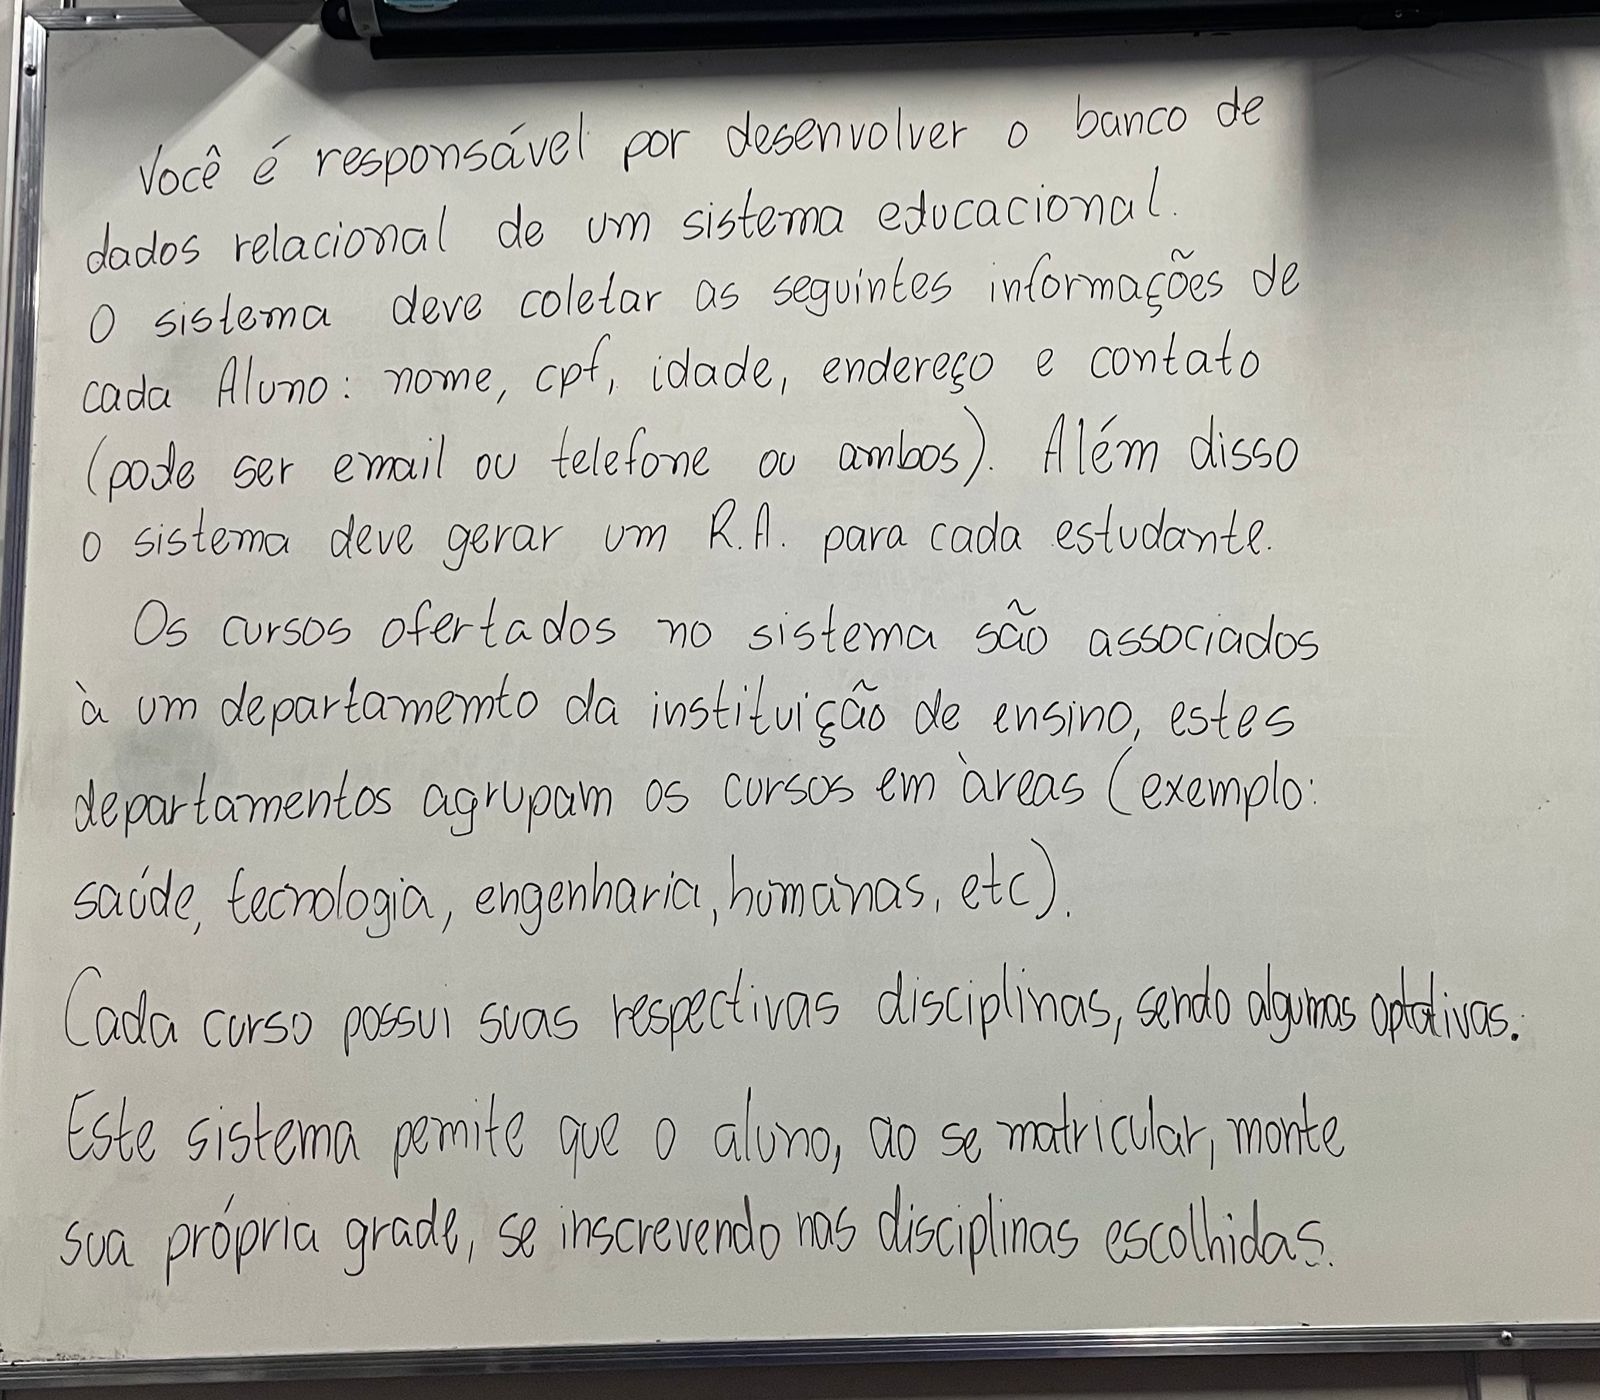 Você é responsável por desenvolver o banco de
dados relacional de um sistema educacional.
O sistema deve coletar as seguintes informações de
cada Aluno: nome, cpf, idade, endereço e contato
(pode ser email ou telefone ou ambos). Além disso
o sistema deve gerar um R.A. para cada estudante.
Os cursos ofertados no sistema são associados
à um departamemto da instituição de ensino, estes
departamentos agrupam os cursos em àreas (exemplo:
saúde, tecnologia, engenharia, humanas, etc).
Cada curso possui suas respectivas disciplinas, sendo algumas optativas.
Este sistema pemite que o aluno, ao se matricular, monte
sua própria grade, se inscrevendo nas disciplinas escolhidas.